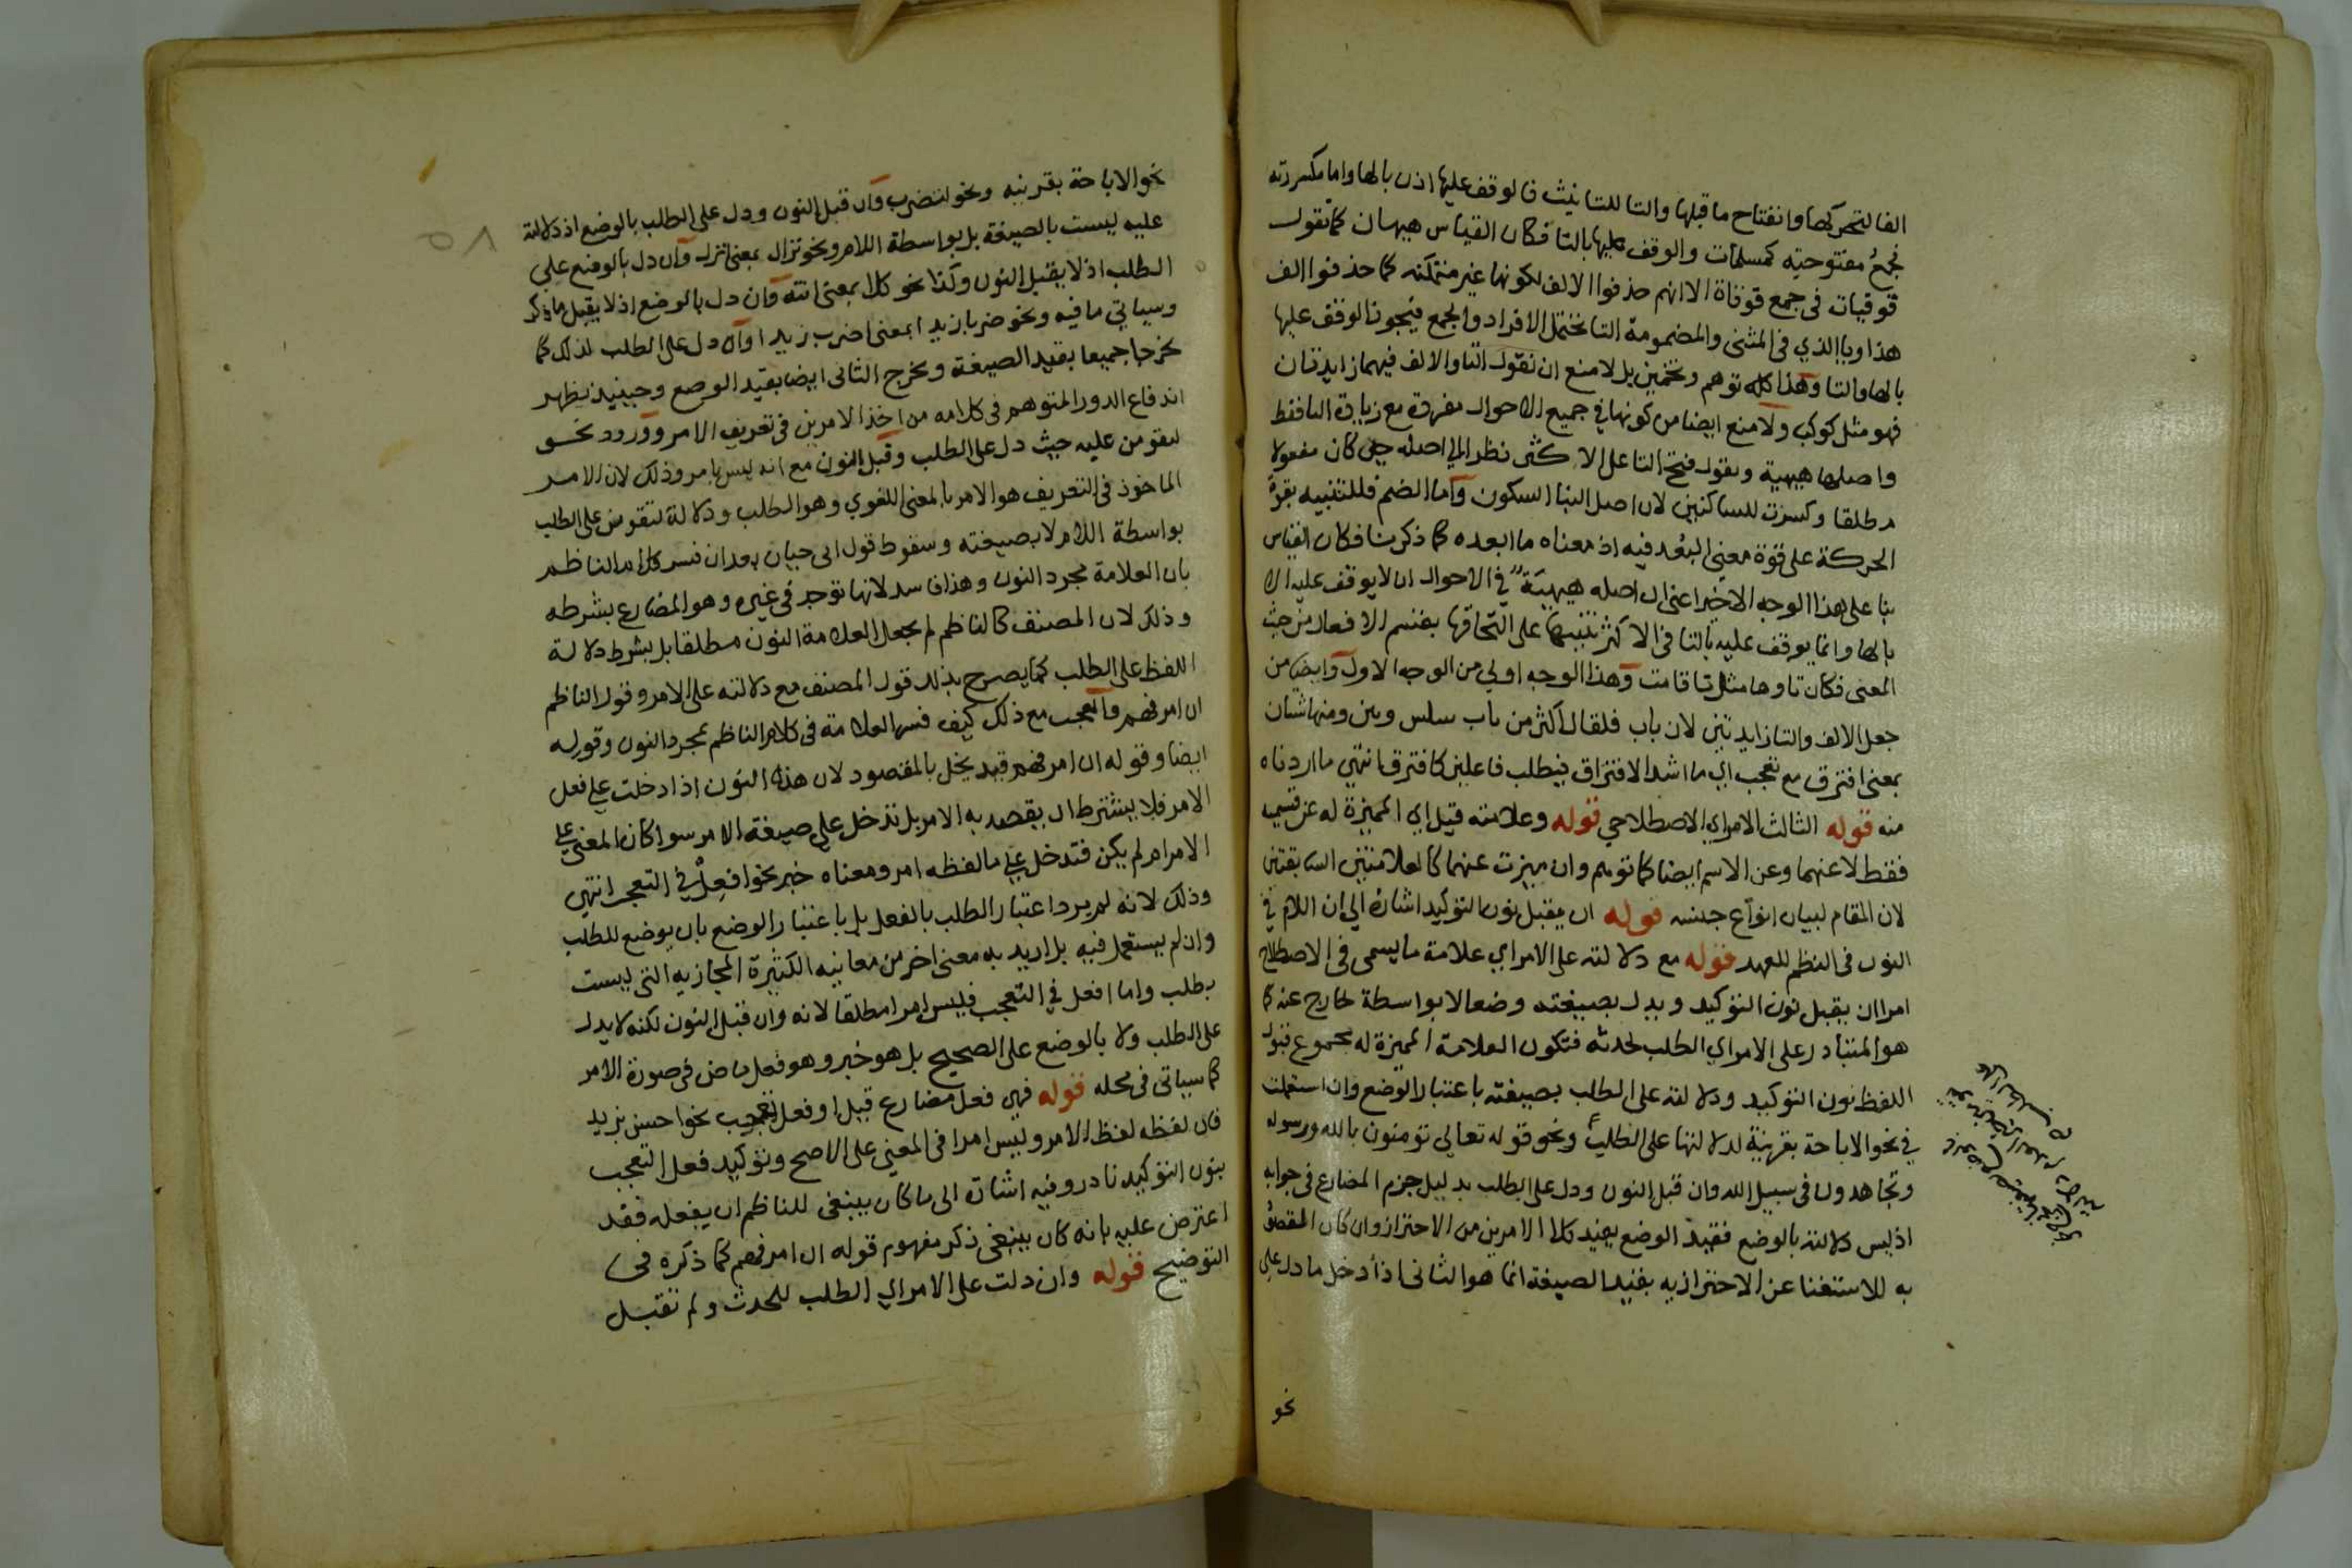 الفا لتحركها وانفتاح ما قبلها والتا للتانيث فالوقف عليها اذن بالها واما مكسورته
فجمع مفتوحته كمسلمات والوقف عليها بالتا فكان القياس هيهيات كما تقول
قوقيات في جمع قوقاة الا انهم حذفوا الالف لكونها غير متمكنه كما حذفوا الف
هذا ويا الذي في المثنى والمضمومة التا تحتمل الافراد والجمع فيجوز الوقف عليها
بالها والتا وهذا كله توهم وتخمين بل لا منع ان نقول التا والالف فيهما زايدتان
فهو مثل كوكب ولا منع ايضا من كونها في جميع الاحوال مفردة مع زيادة التا فقط
واصلها هيهية ونقول فتح التا على الاكثر نظرا الى اصله حين كان مفعولا
مطلقا وكسرت للساكنين لان اصل البنا السكون واما الضم فللتنبيه بقوة
الحركة على قوة معنى البعد فيه اذ معناه ما ابعده كما ذكرنا فكان القياس
بنا على هذا الوجه الاخير اعني ان اصله هيهية في الاحوال ان لا يوقف عليه الا
بالها وانما يوقف عليه بالتا في الاكثر تنبيها على التحاقها بقسم الافعال من حيث
المعنى فكان تاوها مثل تا قامت وهذا الوجه اولى من الوجه الاول وايضا من
جعل الالف والتا زايدتين لان باب قلقال اكثر من باب سلس وببن ومنها شتان
بمعنى افترق مع تعجب اي ما اشد الافتراق فيطلب فاعلين كافترق انتهى ما اردناه
منه قوله الثالث الامر اي الاصطلاحي قوله وعلامته قيل اي المميزة له عن قسيميه
فقط لا عنهما وعن الاسم ايضا كما توهم وان ميزت عنهما كالعلامتين السابقتين
لان المقام لبيان انواع جنسه قوله ان يقبل نون التوكيد اشارة الى ان اللام في
النون في النظم للعهد قوله مع دلالته على الامر اي علامة ما يسمى في الاصطلاح
امرا ان يقبل نون التوكيد ويدل بصيغته وضعا لا بواسطة خارج عنه كما
هو المتبادر على الامر اي الطلب لحدثه فتكون العلامة المميزة له مجموع قبول
اللفظ نون التوكيد ودلالته على الطلب بصيغته باعتبار الوضع وان استعملت
في نحو الاباحة بقرينة لدلالتها على الطلب ونحو قوله تعالى تومنون بالله ورسوله
وتجاهدون في سبيل الله وان قبل النون ودل على الطلب بدليل جزم المضارع في جوابه
اذ ليس دلالته بالوضع فقيد الوضع يفيد كلا الامرين من الاحتراز وان كان المقصود
به للاستغنا عن الاحتراز به بقيد الصيغة انما هو الثاني اذ ادخل ما دل على
نحو
نحو الاباحة بقرينه ونحو لتضرب وان قبل النون ودل على الطلب بالوضع اذ دلالته
عليه ليست بالصيغة بل بواسطة اللام ونحو نزال بمعنى انزل وان دل بالوضع على
الطلب اذ لا يقبل النون وكذا نحو كلا بمعنى انته وان دل بالوضع اذ لا يقبل ما ذكر
وسياتي ما فيه ونحو ضربا زيدا بمعنى اضرب زيدا وان دل على الطلب لذلك كما
خرجا جميعا بقيد الصيغة ويخرج الثاني ايضا بقيد الوضع وحينيذ يظهر
اندفاع الدور المتوهم في كلامه من اخذ الامرين في تعريف الامر وورود نحو
لتقومن عليه حيث دل على الطلب وقبل النون مع انه ليس بامر وذلك لان الامر
الماخوذ في التعريف هو الامر بالمعنى اللغوي وهو الطلب ودلالة لتقومن على الطلب
بواسطة اللام لا بصيغته وسقوط قول ابي حيان بعد ان فسر كلام الناظم
بان العلامة مجرد النون وهذا فاسد لانها توجد في غيره وهو المضارع بشرطه
وذلك لان المصنف كالناظم لم يجعل العلامة النون مطلقا بل بشرط دلالة
اللفظ على الطلب كما يصرح بذلك قول المصنف مع دلالته على الامر وقول الناظم
ان امر فهم والعجب مع ذلك كيف فسر العلامة في كلام الناظم بمجرد النون وقوله
ايضا وقوله ان امر فهم قيد يخل بالمقصود لان هذه النون اذا دخلت على فعل
الامر فلا يشترط ان يقصد به الامر بل تدخل على صيغة الامر سوا كان المعنى على
الامر ام لم يكن فتدخل على ما لفظه امر ومعناه خبر نحو افعل في التعجب انتهى
وذلك لانه لم يرد اعتبار الطلب بالفعل بل باعتبار الوضع بان يوضع للطلب
وان لم يستعمل فيه بل اريد به معنى اخر من معانيه الكثيرة المجازيه التي ليست
بطلب واما افعل في التعجب فليس امرا مطلقا لانه وان قبل النون لكنه لا يدل
على الطلب ولا بالوضع على الصحيح بل هو خبر وهو فعل ماض في صورة الامر
كما سياتي في محله قوله فهي فعل مضارع قيل او فعل تعجب نحو احسن بزيد
فان لفظه لفظ الامر وليس امرا في المعنى على الاصح وتوكيد فعل التعجب
بنون التوكيد نادر وفيه اشارة الى ما كان ينبغي للناظم ان يفعله فقد
اعترض عليه بانه كان ينبغي ذكر مفهوم قوله ان امر فهم كما ذكره في
التوضيح قوله وان دلت على الامر اي الطلب للحدث ولم تقبل